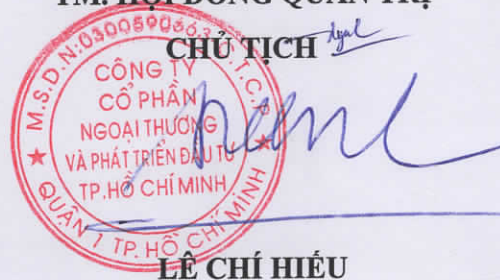 TM. HỘI ĐỒNG QUẢN TRỊ
CHỦ TỊCH
M.S.D.N:0300590663-C.T.C.P
CÔNG TY
CỔ PHẦN
NGOẠI THƯƠNG
VÀ PHÁT TRIỂN ĐẦU TƯ
TP.HỒ CHÍ MINH
QUẬN 1 TP. HỒ CHÍ MINH
LÊ CHÍ HIẾU